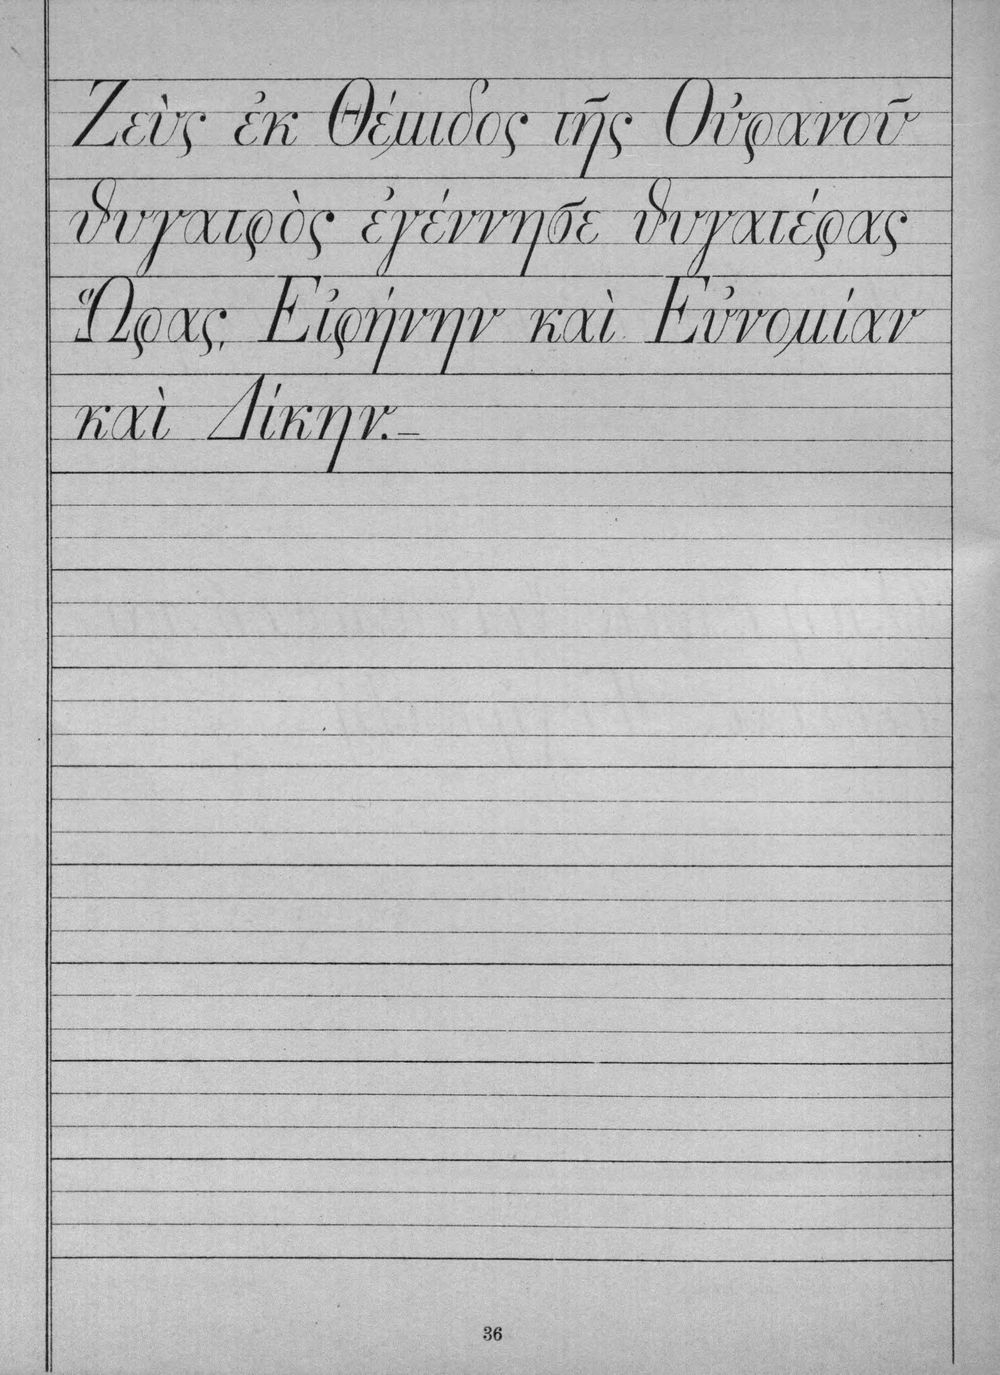 Ζεὺς ἐκ Θέμιδος τῆς Οὐρανοῦ
θυγατρὸς ἐγέννησε θυγατέρας
Ὥρας, Εἰρήνην καὶ Εὐνομίαν
καὶ Δίκην.–
36